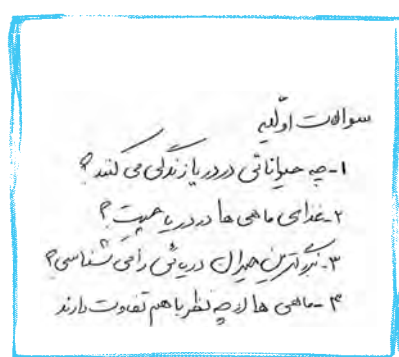 سوالات اولیه
۱- چه حیواناتی در دریا زندگی می کنند؟
۲- غذای ماهی ها در دریا چیست؟
۳- بزرگترین حیوان دریائی را می شناسی؟
۴- ماهی ها از چه نظر با هم تفاوت دارند